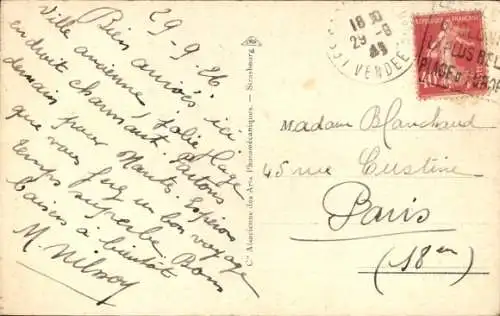 29-9-26
Bien arrivés ici
ville ancienne, jolie plage
endroit charmant. Partons
demain pour Nantes. Espérons
que vous ferez un bon voyage
temps superbe. Bons
baisers à bientôt
M.
Cie Alsacienne des Arts Photomécaniques. — Strasbourg
18 30
29-8
VENDÉE
PLUS BEL
PLAGE D'
Madame Blanchaud
45 rue Custine
Paris
(18em)